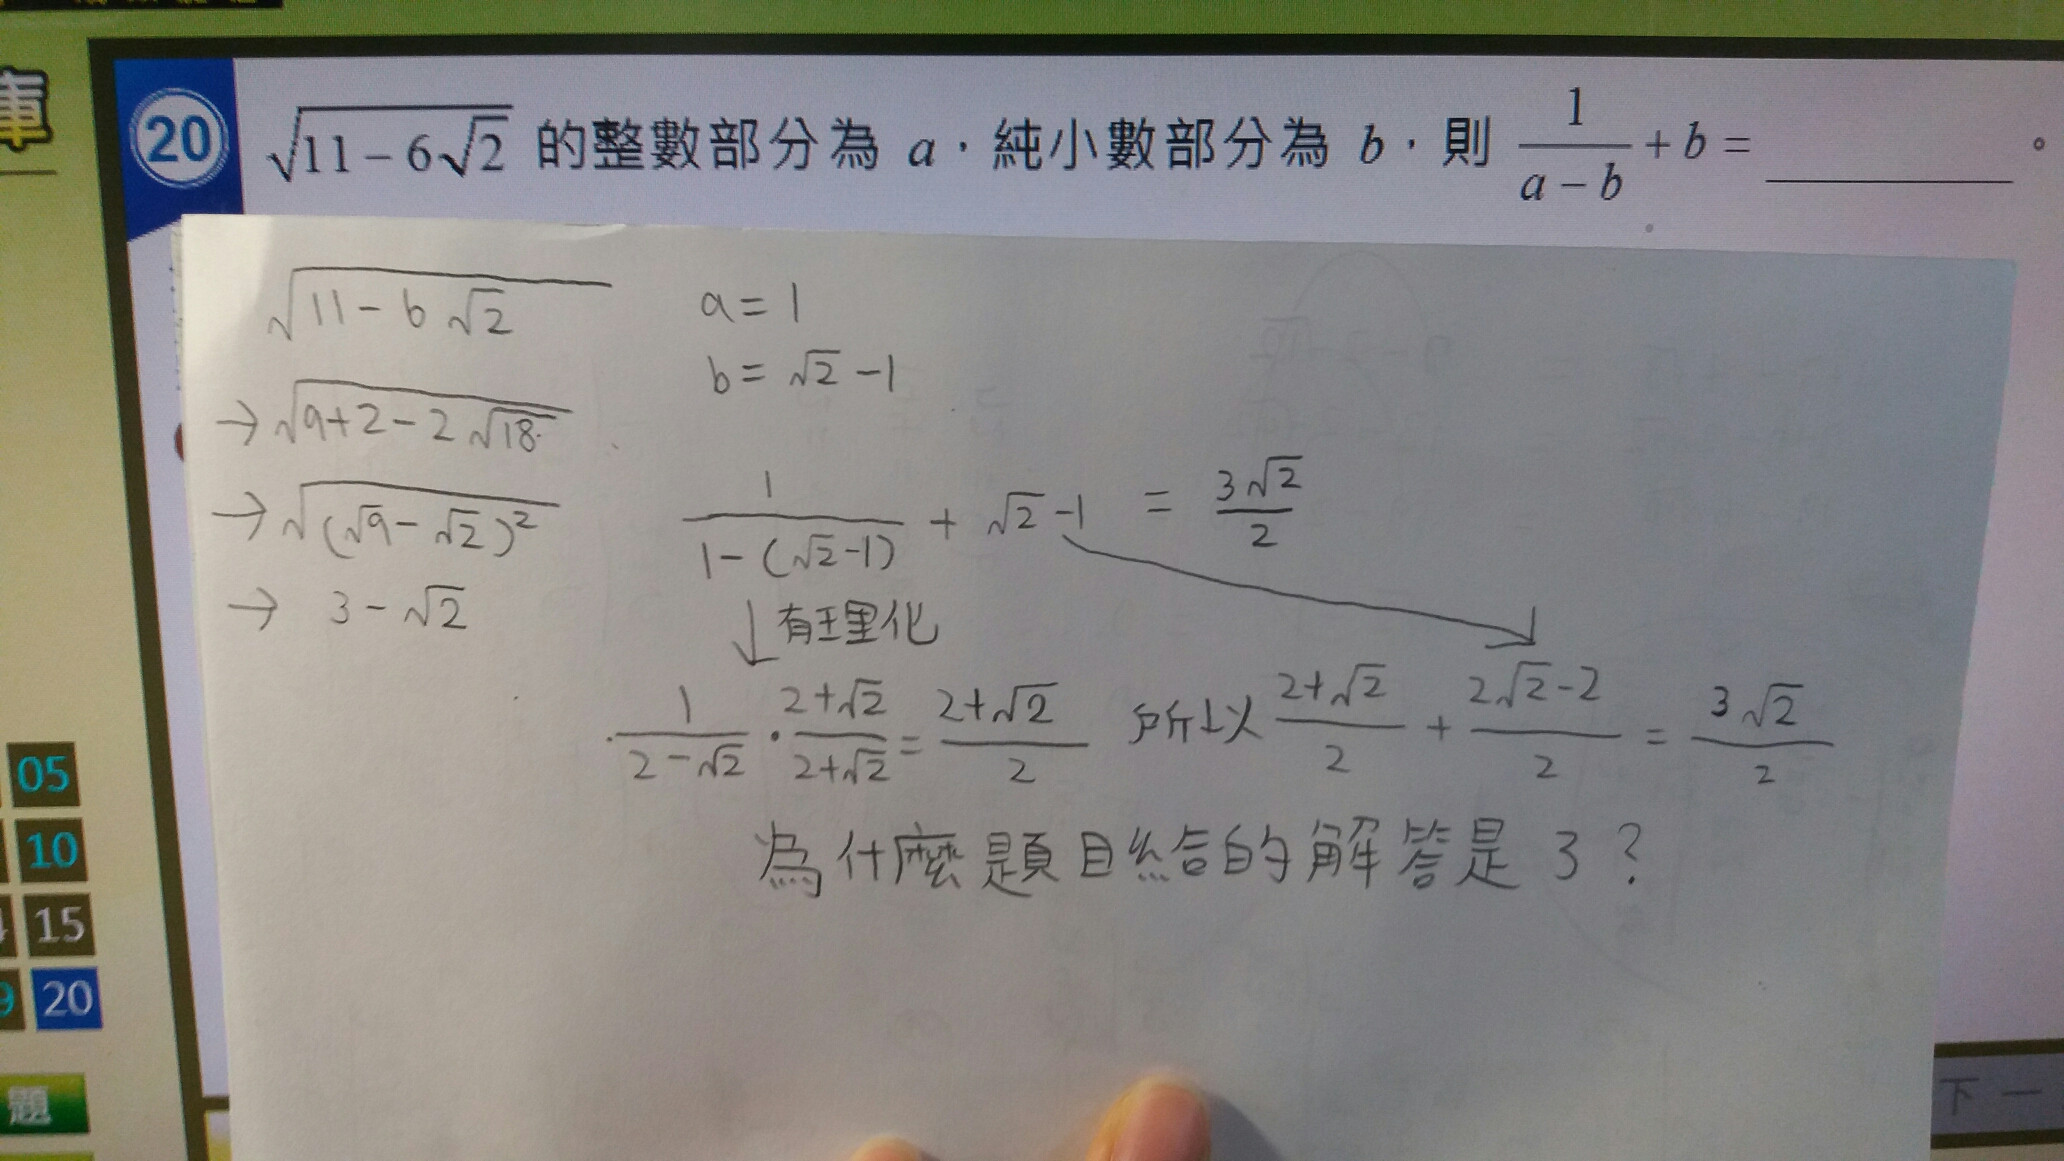 庫
20 √(11−6√2) 的整數部分為 a，純小數部分為 b，則 1/(a−b) + b = ______ 。
√(11−6√2)
→ √(9+2−2√18)
→ √((√9−√2)²)
→ 3−√2
a = 1
b = √2 −1
1/(1−(√2−1)) + √2 −1 = 3√2/2
↓ 有理化
1/(2−√2) · (2+√2)/(2+√2) = (2+√2)/2 所以 (2+√2)/2 + (2√2−2)/2 = 3√2/2
為什麼題目給的解答是 3？
05
10
15
9 20
題
下一